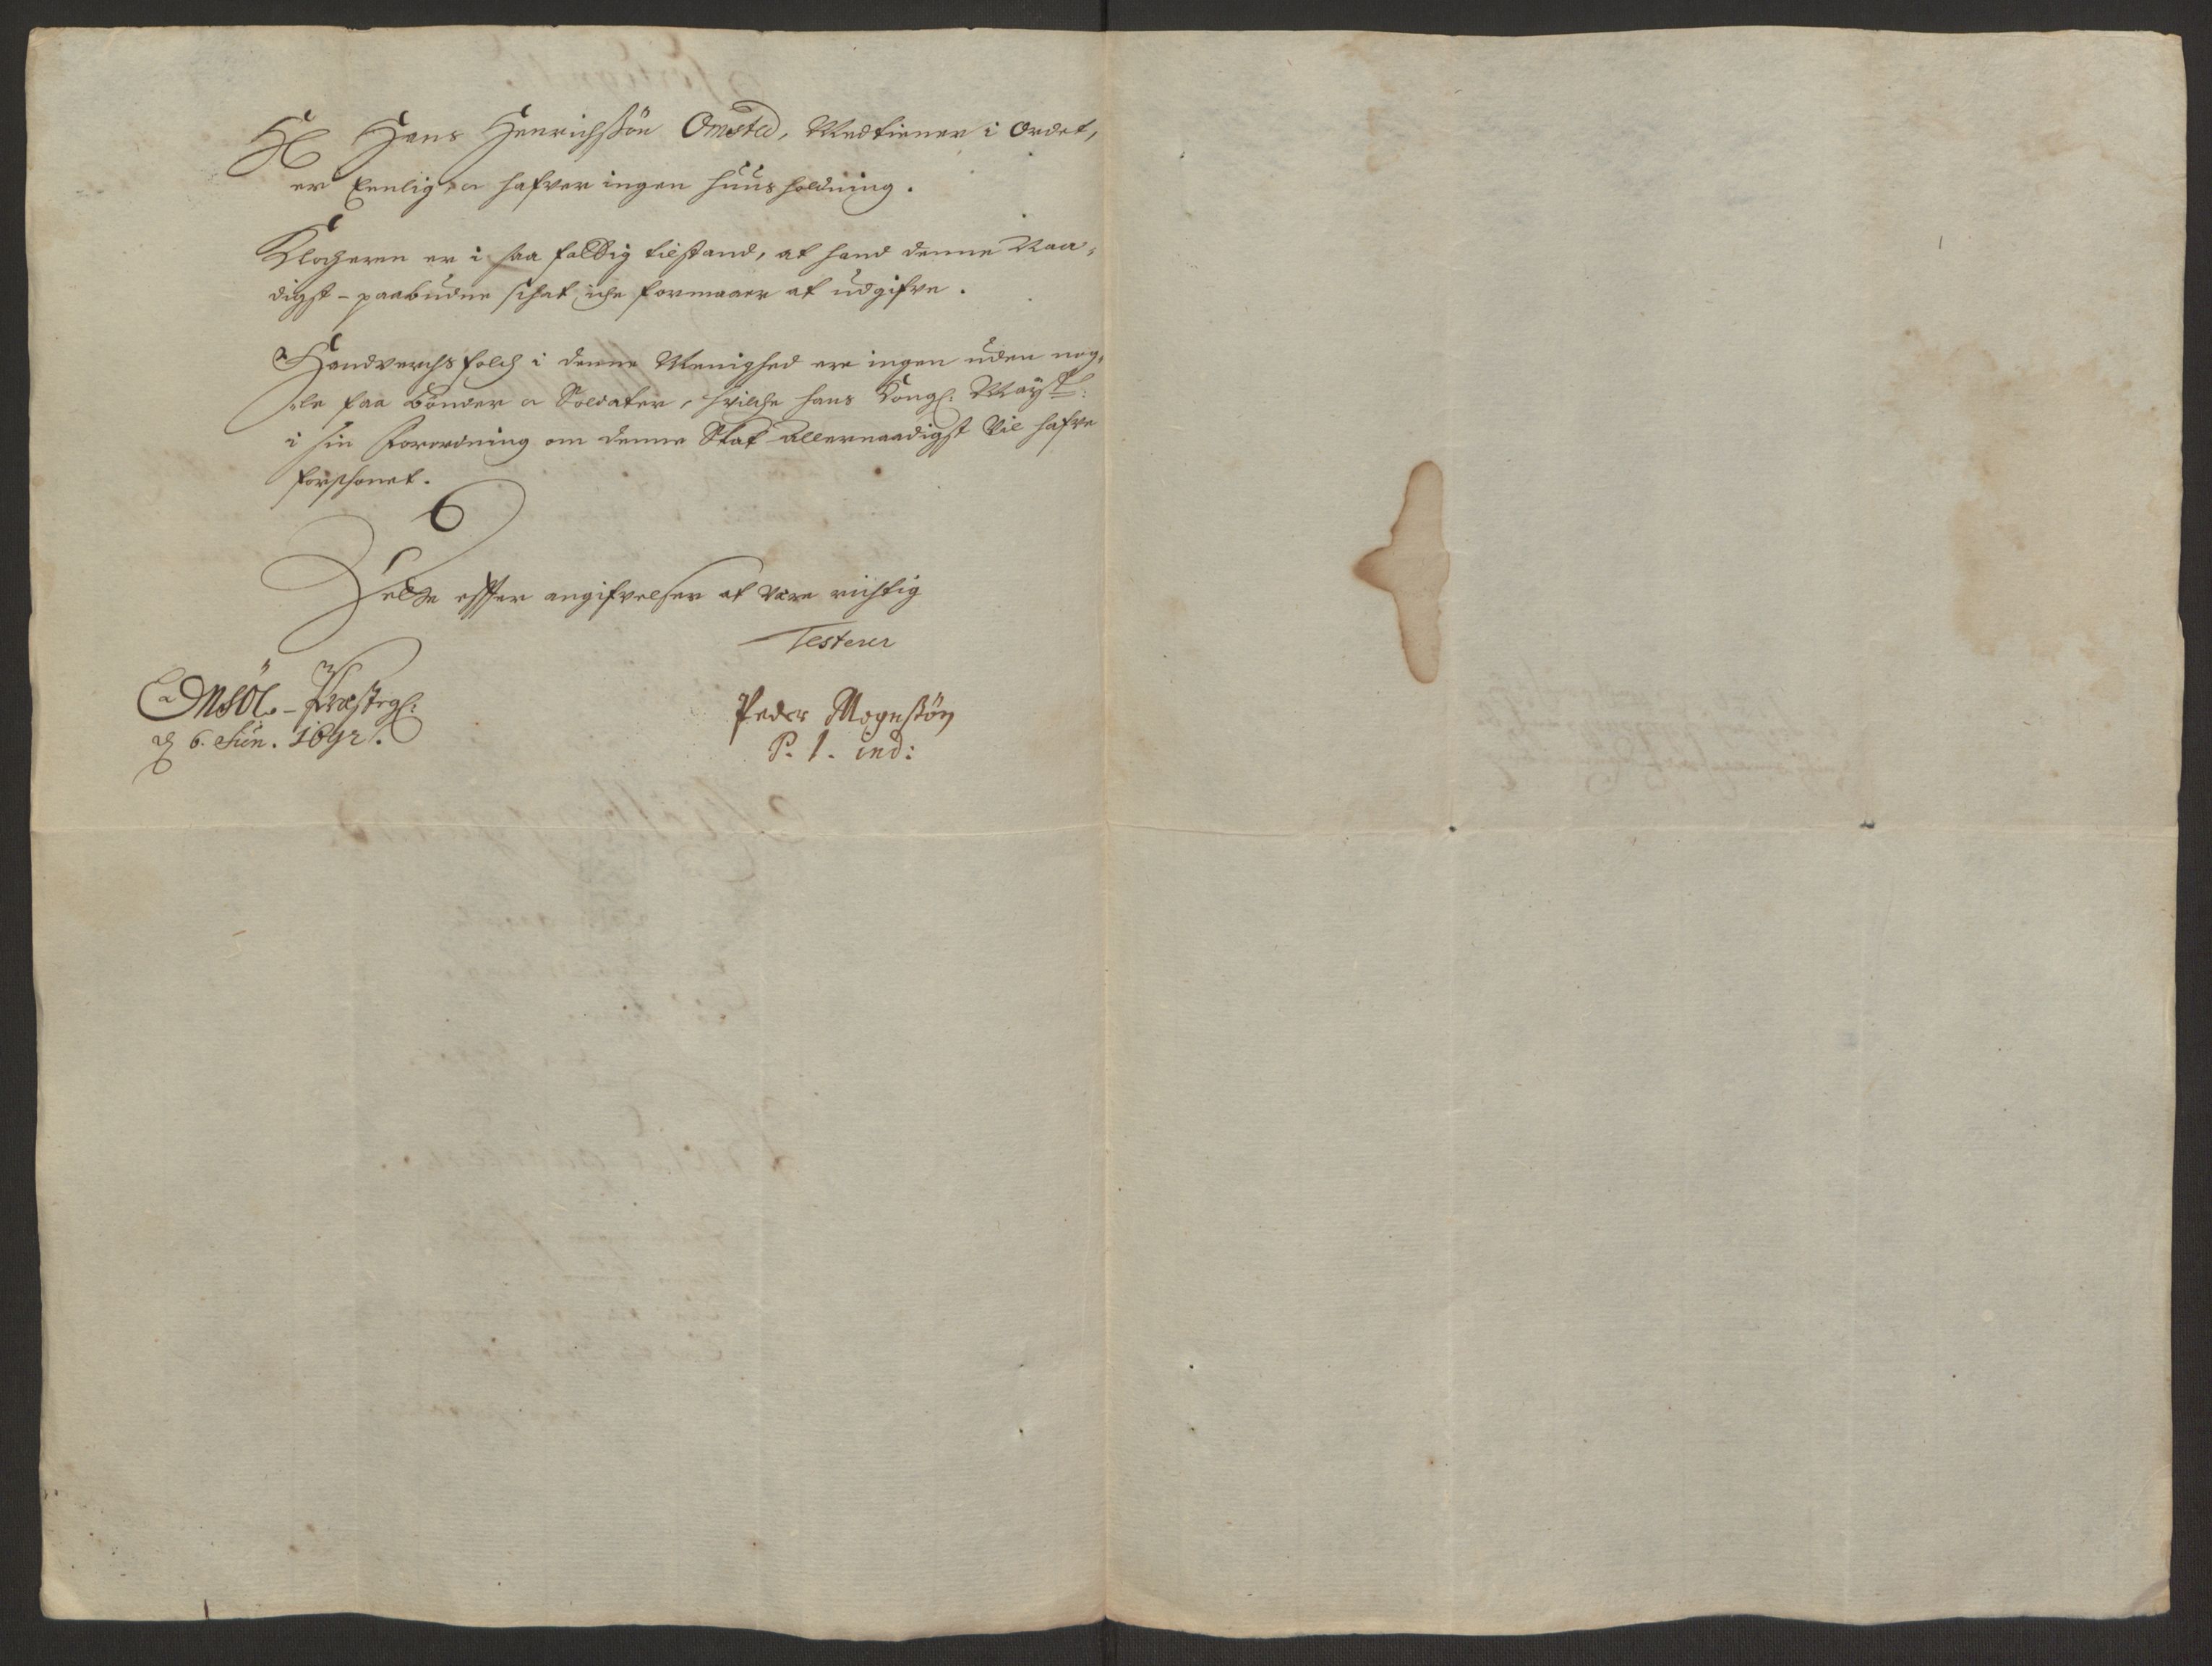 H Hans Henrichsön Omsted, Medtiener i Ordet,
er Eenlig, oc hafver ingen huusholdning.
Klocheren er i saa fattig tilstand, at hand denne Naa-
digst-paabudne schat iche formaaer at udgifve.
Handverchs folch i denne Menighed ere ingen uden nog-
le faa bönder oc Soldater, hvilche hans Kongl: Mayst:
i sin Forordning om denne Skat allernaadigst Vil hafve
forschonet.
Dette effter angifvelser at være richtig
Testerer
Omsöl.-Præstegl:
d 6. Jun. 1692.
Peder Mognsßön
P. l. ind: